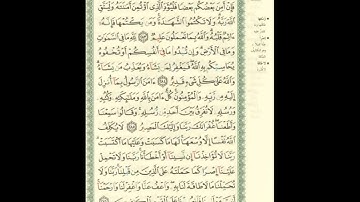 فَإِنْ أَمِنَ بَعْضُكُم بَعْضًا فَلْيُؤَدِّ الَّذِي اؤْتُمِنَ أَمَٰنَتَهُ وَلْيَتَّقِ
اللَّهَ رَبَّهُ وَلَا تَكْتُمُوا الشَّهَٰدَةَ وَمَن يَكْتُمْهَا فَإِنَّهُ
ءَاثِمٌ قَلْبُهُ وَاللَّهُ بِمَا تَعْمَلُونَ عَلِيمٌ ٢٨٣ لِّلَّهِ مَا فِي السَّمَٰوَٰتِ
وَمَا فِي الْأَرْضِ وَإِن تُبْدُوا مَا فِي أَنفُسِكُمْ أَوْ تُخْفُوهُ
يُحَاسِبْكُم بِهِ اللَّهُ فَيَغْفِرُ لِمَن يَشَاءُ وَيُعَذِّبُ مَن يَشَاءُ
وَاللَّهُ عَلَىٰ كُلِّ شَيْءٍ قَدِيرٌ ٢٨٤ ءَامَنَ الرَّسُولُ بِمَا أُنزِلَ
إِلَيْهِ مِن رَّبِّهِ وَالْمُؤْمِنُونَ كُلٌّ ءَامَنَ بِاللَّهِ وَمَلَٰئِكَتِهِ وَكُتُبِهِ
وَرُسُلِهِ لَا نُفَرِّقُ بَيْنَ أَحَدٍ مِّن رُّسُلِهِ وَقَالُوا سَمِعْنَا
وَأَطَعْنَا غُفْرَانَكَ رَبَّنَا وَإِلَيْكَ الْمَصِيرُ ٢٨٥ لَا يُكَلِّفُ
اللَّهُ نَفْسًا إِلَّا وُسْعَهَا لَهَا مَا كَسَبَتْ وَعَلَيْهَا مَا اكْتَسَبَتْ
رَبَّنَا لَا تُؤَاخِذْنَا إِن نَّسِينَا أَوْ أَخْطَأْنَا رَبَّنَا وَلَا تَحْمِلْ
عَلَيْنَا إِصْرًا كَمَا حَمَلْتَهُ عَلَى الَّذِينَ مِن قَبْلِنَا رَبَّنَا وَلَا
تُحَمِّلْنَا مَا لَا طَاقَةَ لَنَا بِهِ وَاعْفُ عَنَّا وَاغْفِرْ لَنَا وَارْحَمْنَا